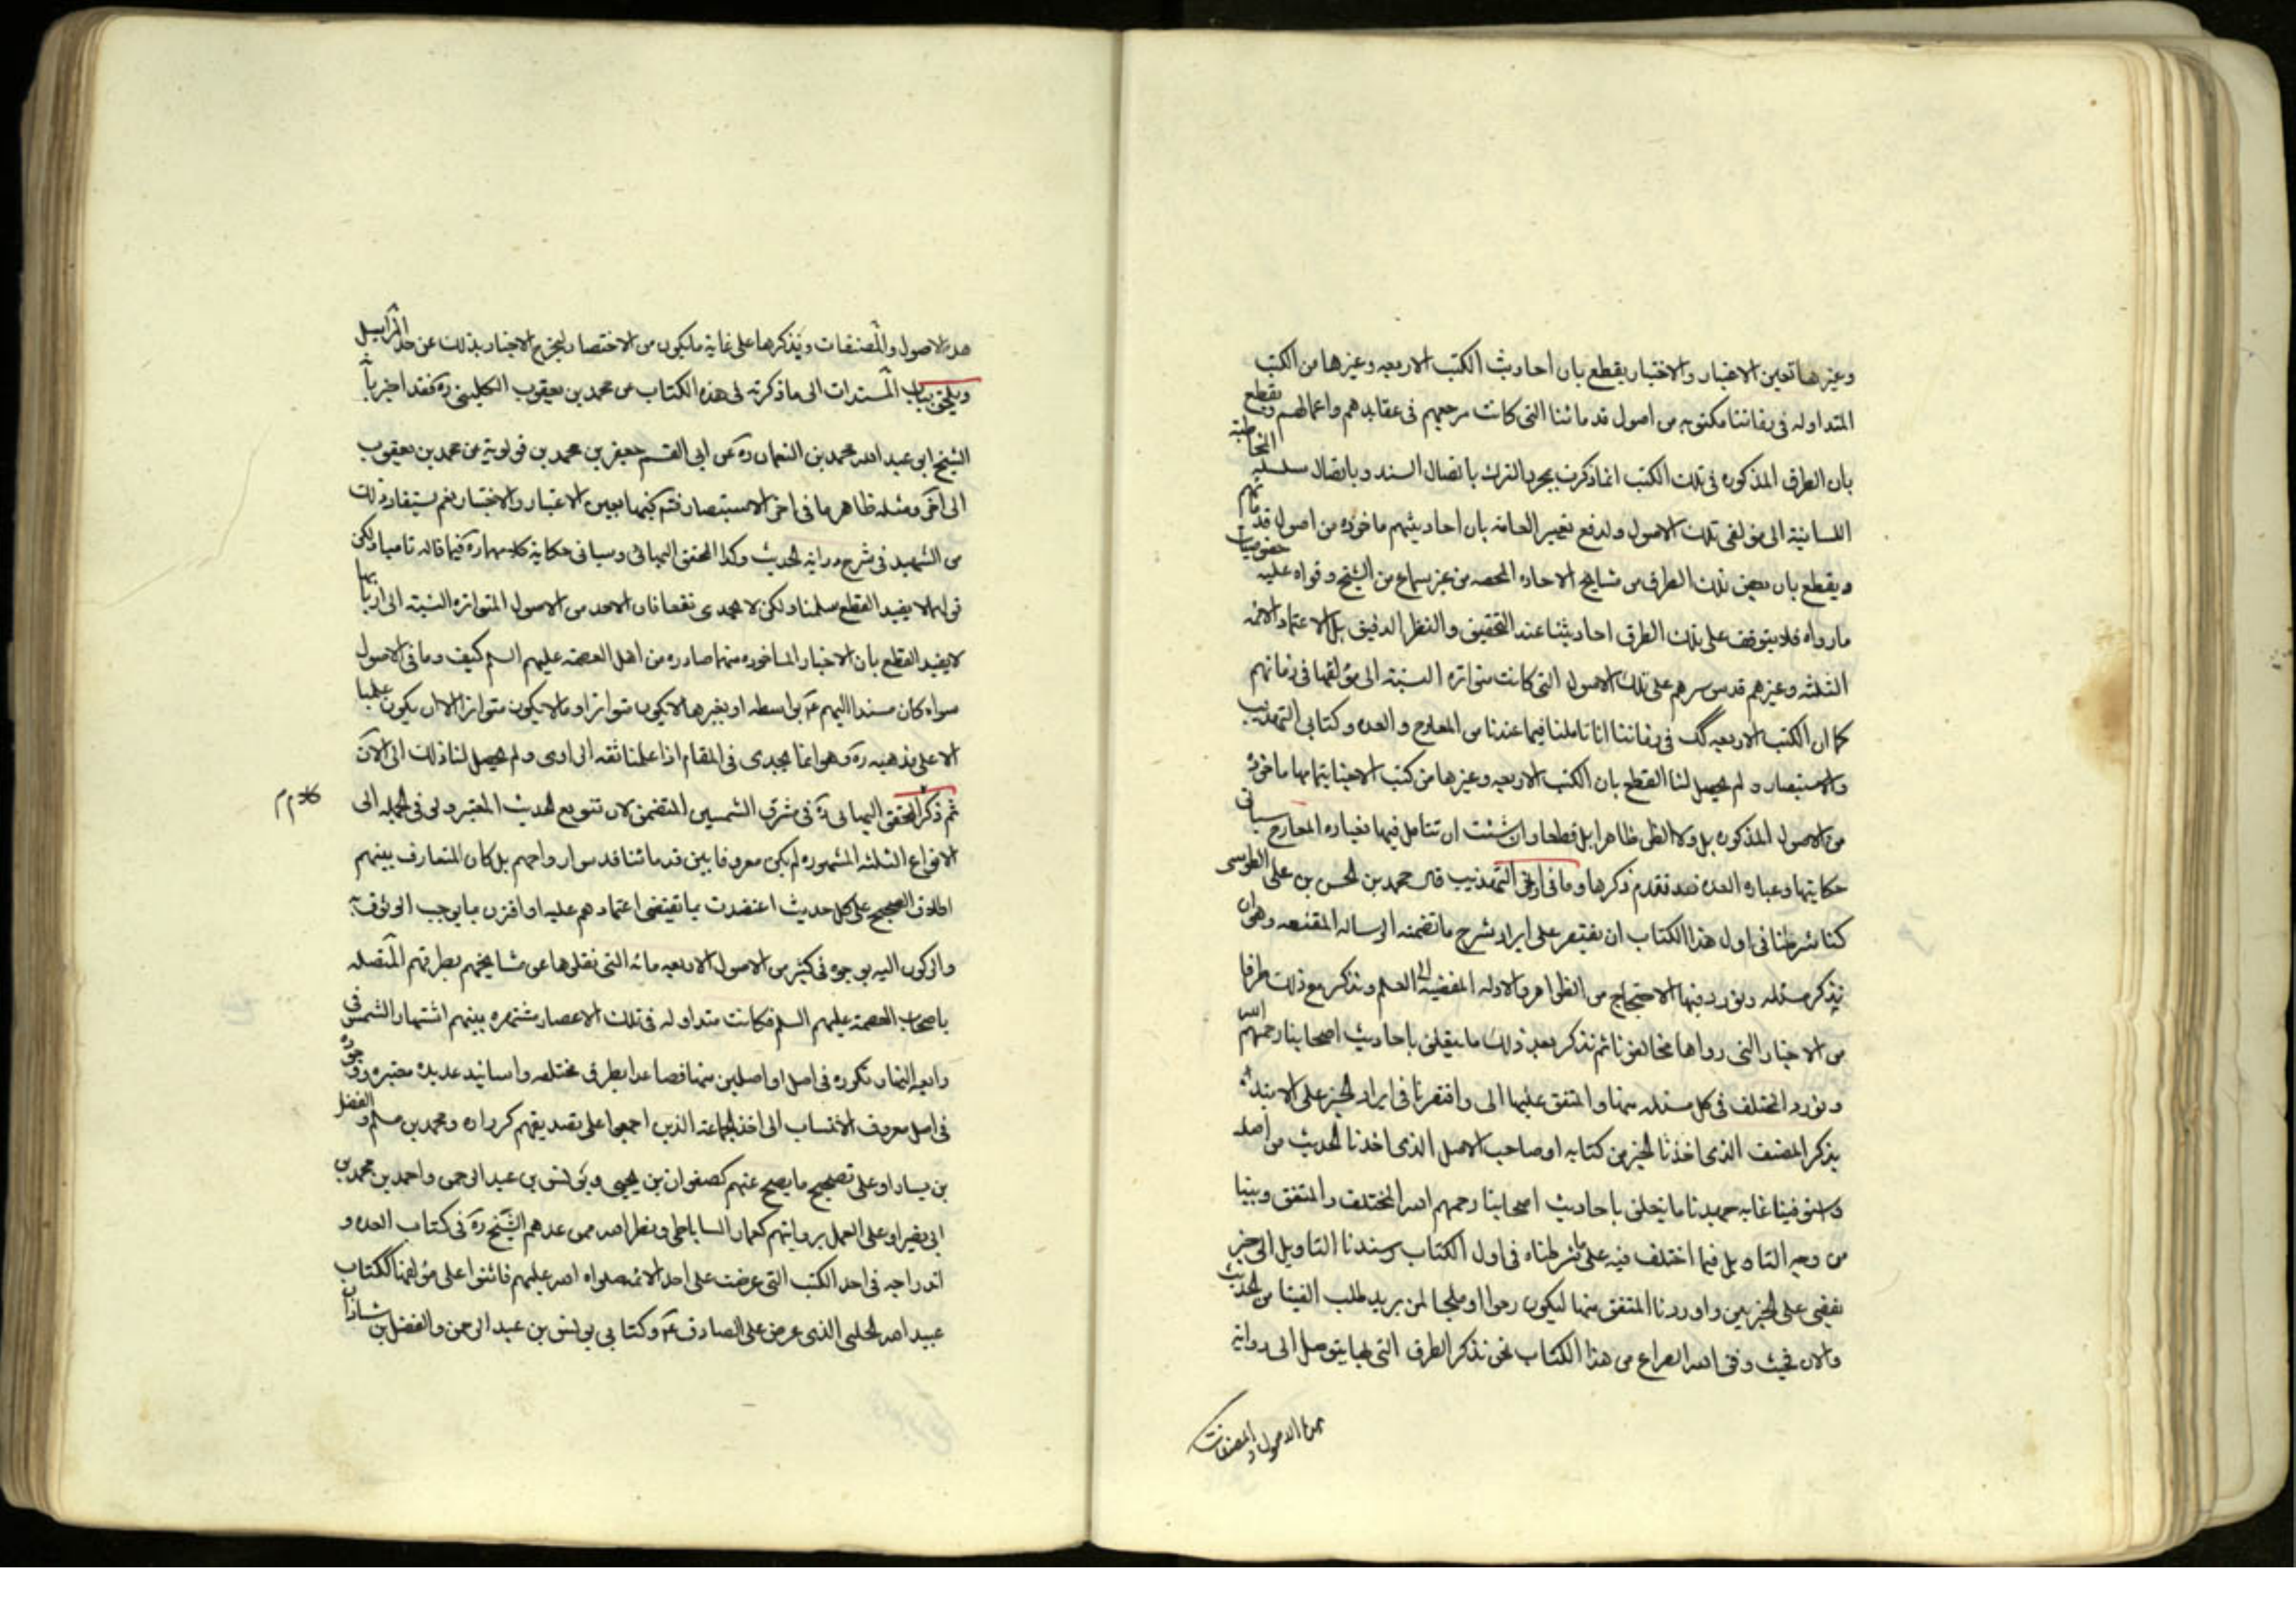 وغيرها تعين الاعتبار والاختبار يقطع بان احاديث الكتب الاربعه وغيرها من الكتب
المتداوله فى زماننا مكتوبه من اصول قدمائنا التى كانت مرجعهم فى عقايدهم واعمالهم ويقطع
بان الطرق المذكوره فى تلك الكتب انما ذكرت بمجرد التبرك باتصال السند وباتصال سلسله المخاطبة
اللسانية الى مؤلفى تلك الاصول ولدفع تعيير العامه بان احاديثهم ماخوذه من اصول قدمائهم
ويقطع بان بعض تلك الطرق من مشايخ الاجازه المحصه من غير سماع من الشيخ وقراه عليه خصوصيات
مارواه فلا يتوقف على تلك الطرق احاديثنا عند التحقيق والنظر الدقيق بل الاعتماد الائمه
الثلثه وغيرهم قدس سرهم على تلك الاصول التى كانت متواتره النسبة الى مؤلفها فى زمانهم
كما ان الكتب الاربعه كك فى زماننا انا تاملنا فيما عندنا من المعارج والعده وكتابى التهذيب
والاستبصار ولم يحصل لنا القطع بان الكتب الاربعه وغيرها من كتب الاحبنا بتمامها ماخوذه
من الاصول المذكوره بل ولا الظن ظاهرا بل قطعا وان شئت ان تتامل فيها فعباره المعارج سياتى
حكايتها وعباره العده قد تقدم ذكرها وما فى اخر التهذيب قال محمد بن الحسن بن على الطوسى
كنا شرطنا فى اول هذا الكتاب ان نقتصر على ايراد شرح ما تضمنه الرساله المقنعه وهوان
نذكر مسئله ونورد فيها الاحتجاج من الظواهر والادله المفضية الى العلم ونذكر مع ذلك طرفا
من الاخبار التى رواها مخالفونا ثم نذكر بعد ذلك ما يتعلق باحاديث اصحابنا رحمهم الله
ونورد المختلف فى كل مسئله منها والمتفق عليها الى واقتصرنا فى ايراد الخبر على الابتداء
بذكر المصنف الذى اخذنا الخبر من كتابه او صاحب الاصل الذى اخذنا الحديث من اصله
واستوفينا غاية جهدنا ما يتعلق باحاديث اصحابنا رحمهم الله المختلف والمتفق وبينا
من وجه التاويل فيما اختلف فيه على ما شرطناه فى اول الكتاب وسندنا التاويل الى خبر
يقضى على الخبرين واوردنا المتفق منها ليكون ذخرا وملجا لمن يريد طلب الفتيا من الحديث
والان فحيث وفق الله الفراغ من هذا الكتاب نحن نذكر الطرق التى بها يتوصل الى رواية
هذه الاصول والمصنفات
هذه الاصول والمصنفات ونذكرها على غاية ما يكون من الاختصار لتخرج الاخبار بذلك عن حد المراسيل
ويلحق بباب المسندات الى ما ذكرته فى هذه الكتاب عن محمد بن يعقوب الكلينى ره فقد اخبرنا
الشيخ ابو عبد الله محمد بن النعمان ره عن ابى القسم جعفر بن محمد بن قولوية عن محمد بن يعقوب
الى اخره ومثله ظاهر ما فى اخر الاستبصار فثم كيفما بعين الاعتبار والاختبار نعم يستفاد ذلك
من الشهيد فى شرح دراية الحديث وكذا المحقق البهائى وسياتى حكاية كلامهما ره فيما قاله تاميا ولكن
قولهما لا يفيد القطع سلمنا ولكن لا يجدى نفعا فان الاخذ من الاصول المتواتره النسبته الى اربابها
لا يفيد القطع بان الاخبار الماخوذه منها صادره من اهل العصمه عليهم السلم كيف وما فى الاصول
سواء كان مسندا اليهم ع بواسطه او بغيرها لا يكون متواترا وما لا يكون متواترا الا ان يكون علميا
الا على مذهبه ره وهو انما يجدى فى المقام اذا علمنا ثقه الراوى ولم يحصل لنا ذلك الى الان
ثم ذكر المحقق البهائى ره فى مشرق الشمسين المتضمن لان تنويع الحديث المعتبر ولو فى الجمله الى
كلام م
الانواع الثلثه المشهوره لم يكن معروفا بين قدمائنا قدس ارواحهم بل كان المتعارف بينهم
اطلاق الصحيح على كل حديث اعتضدت بما يقتضى اعتمادهم عليه او اقترن بما يوجب الوثوق به
والركون اليه بوجوه فى كثير من الاصول الاربعه مائه التى نقلوها عن مشايخهم بطرقهم المتصله
باصحاب العصمة عليهم السلم فكانت متداوله فى تلك الاعصار مشتهره بينهم اشتهار الشمس فى
رابعه النهار وتكرره فى اصل او اصلين منها فصاعدا بطرق مختلفه واسانيد عديده معتبره ووجوده
فى اصل معروف الانتساب الى احد الجماعة الذين اجمعوا على تصديقهم كزراره ومحمد بن مسلم والفضل
بن يسار او على تصحيح ما يصح عنهم كصفوان بن يحيى ويونس بن عبد الرحمن واحمد بن محمد بن
ابى نصر او على العمل بروايتهم كعمار الساباطى ونظرائه ممن عدهم الشيخ ره فى كتاب العده و
اندراجه فى احد الكتب التى عرضت على احد الائمه صلوات الله عليهم فاثنوا على مؤلفها ككتاب
عبيد الله الحلبى الذى عرض على الصادق ع وكتابى يونس بن عبد الرحمن والفضل بن شاذان